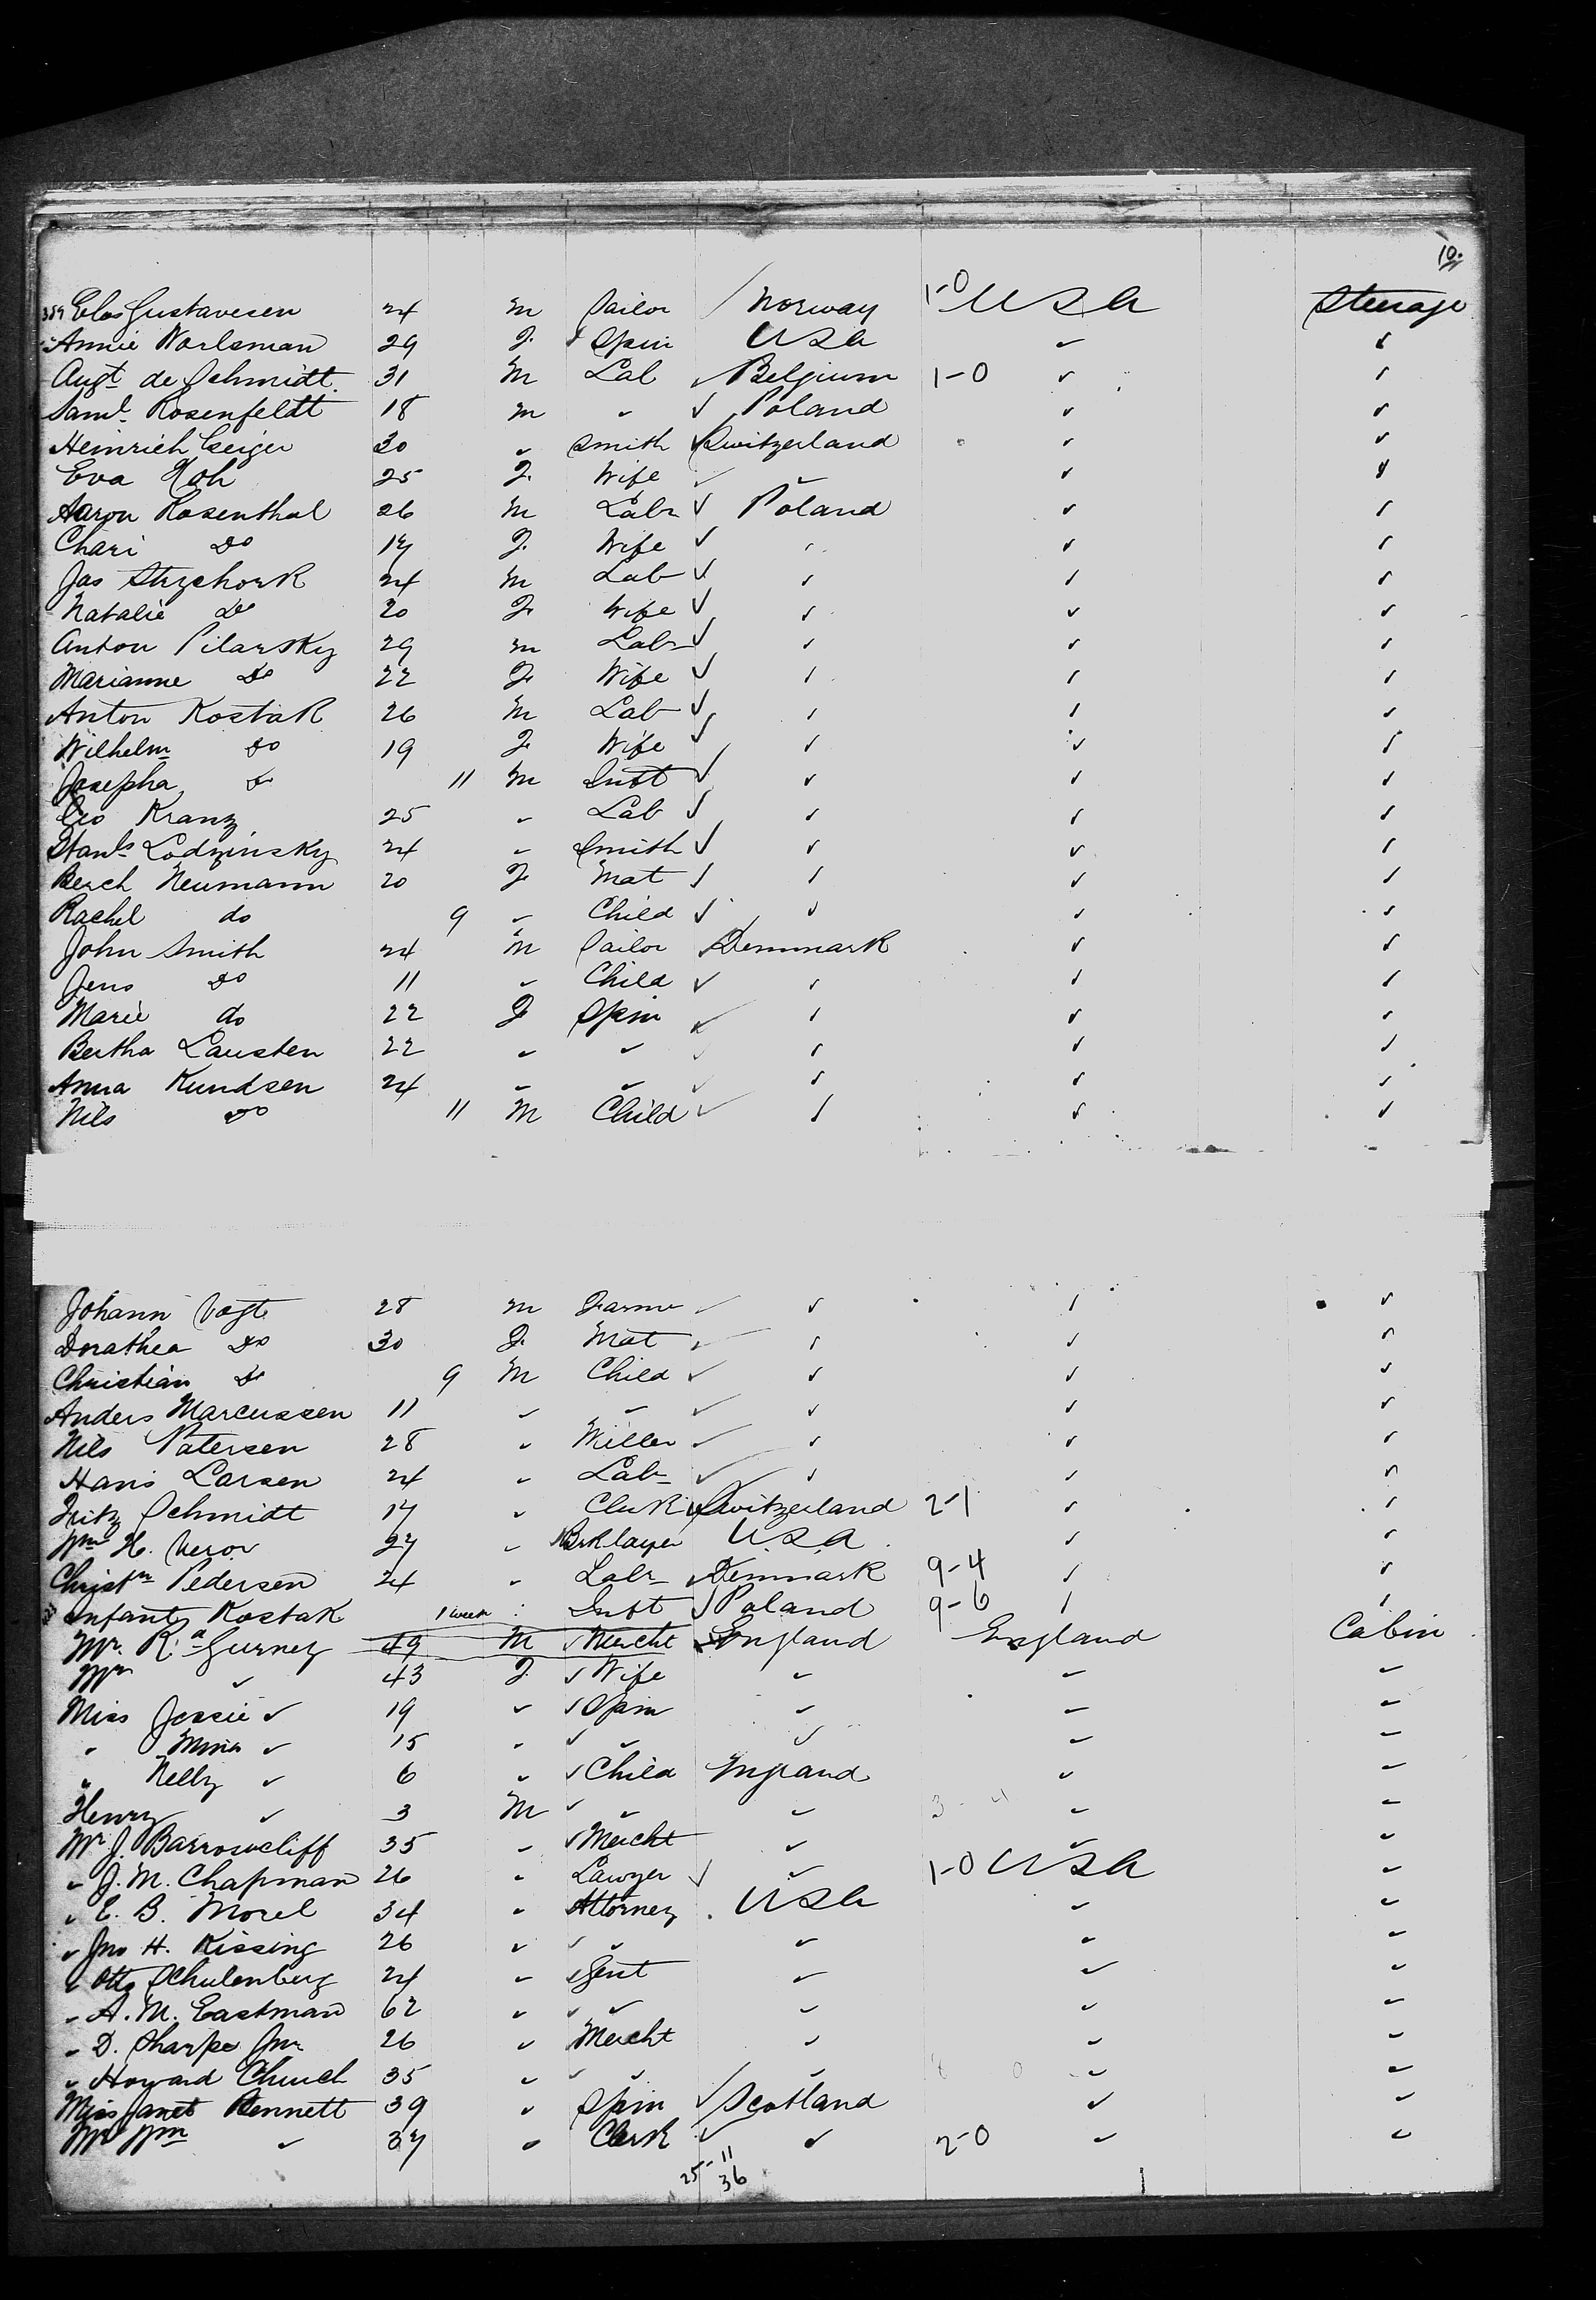 10.
359 Elos Gustavesen 24 M Sailor / Norway 1-0 USA Steerage
Annie Worlsman 29 F. ✓ Spin USA ✓ ✓
Augt de Schmidt 31 M Lab ✓ Belgium 1-0 ✓ ✓
Saml. Rosenfeldt 18 M " ✓ Poland ✓ ✓
Heinrich Geiger 30 " Smith ✓ Switzerland ✓ ✓
Eva Hoh 25 F. Wife ✓ " ✓ ✓
Aaron Rosenthal 26 M Labr ✓ Poland ✓ ✓
Chari Do 17 F. Wife ✓ " ✓ ✓
Jas Strzchork 24 M Lab ✓ " ✓ ✓
Natalie Do 20 F Wife ✓ " ✓ ✓
Anton Pilarsky 29 M Labr ✓ " ✓ ✓
Marianne Do 22 F Wife ✓ " ✓ ✓
Anton Kostak 26 M Lab ✓ " ✓ ✓
Wilhelm Do 19 F Wife ✓ " ✓ ✓
Josepha Do 11 M Inft ✓ " ✓ ✓
Geo Kranz 25 " Lab ✓ " ✓ ✓
Stanls Lodzinsky 24 " Smith ✓ " ✓ ✓
Berch Neumann 20 F Mat ✓ " ✓ ✓
Rachel do 9 " Child ✓ " ✓ ✓
John Smith 24 M Sailor ✓ Denmark ✓ ✓
Jens Do 11 " Child ✓ " ✓ ✓
Marie do 22 F Spin ✓ " ✓ ✓
Bertha Lausten 22 " " ✓ " ✓ ✓
Anna Kundsen 24 " " ✓ " ✓ ✓
Nils Do 11 M Child ✓ " ✓ ✓
Johann Vogt 28 M Farmr ✓ " ✓ ✓
Dorathea Do 30 F. Mat ✓ " ✓ ✓
Christian Do 9 M Child ✓ " ✓ ✓
Anders Marcussen 11 " " ✓ " ✓ ✓
Nils Patersen 28 " Miller ✓ " ✓ ✓
Hans Larsen 24 " Labr ✓ " ✓ ✓
Fritz Schmidt 17 " Clerk ✓ Switzerland 2-1 ✓ ✓
Wm H. Veror 27 " Bricklayer USA ✓ ✓
Christn Pedersen 24 " Labr ✓ Denmark 9-4 ✓ ✓
Infant Kostak 1 week " Inft ✓ Poland 9-6 ✓ ✓
Mr. Rd Gurney 49 M ✓ Mercht England England Cabin
Mrs " 43 F. ✓ Wife " " "
Miss Jessie " 19 " ✓ Spin " " "
" Mina " 15 " ✓ " " " "
" Nelly " 6 " ✓ Child England " "
Henry " 3 M ✓ " " " "
Mr J. Barrowcliff 35 " ✓ Mercht " " "
" J. M. Chapman 26 " Lawyer ✓ " 1-0 USA "
" E. B. Morel 34 " Attorney USA " "
" Jno H. Kissing 26 " " " " "
" Otto Schulenberg 24 " ✓ Gent " " "
" A. M. Eastman 62 " " " " "
" D. Sharpe Jnr 26 " Mercht " " "
" Howard Church 35 " " " " "
Miss Janet Bennett 39 " Spin ✓ Scotland " "
Mr Wm " 37 " Clerk ✓ " 2-0 " "
25-11
36